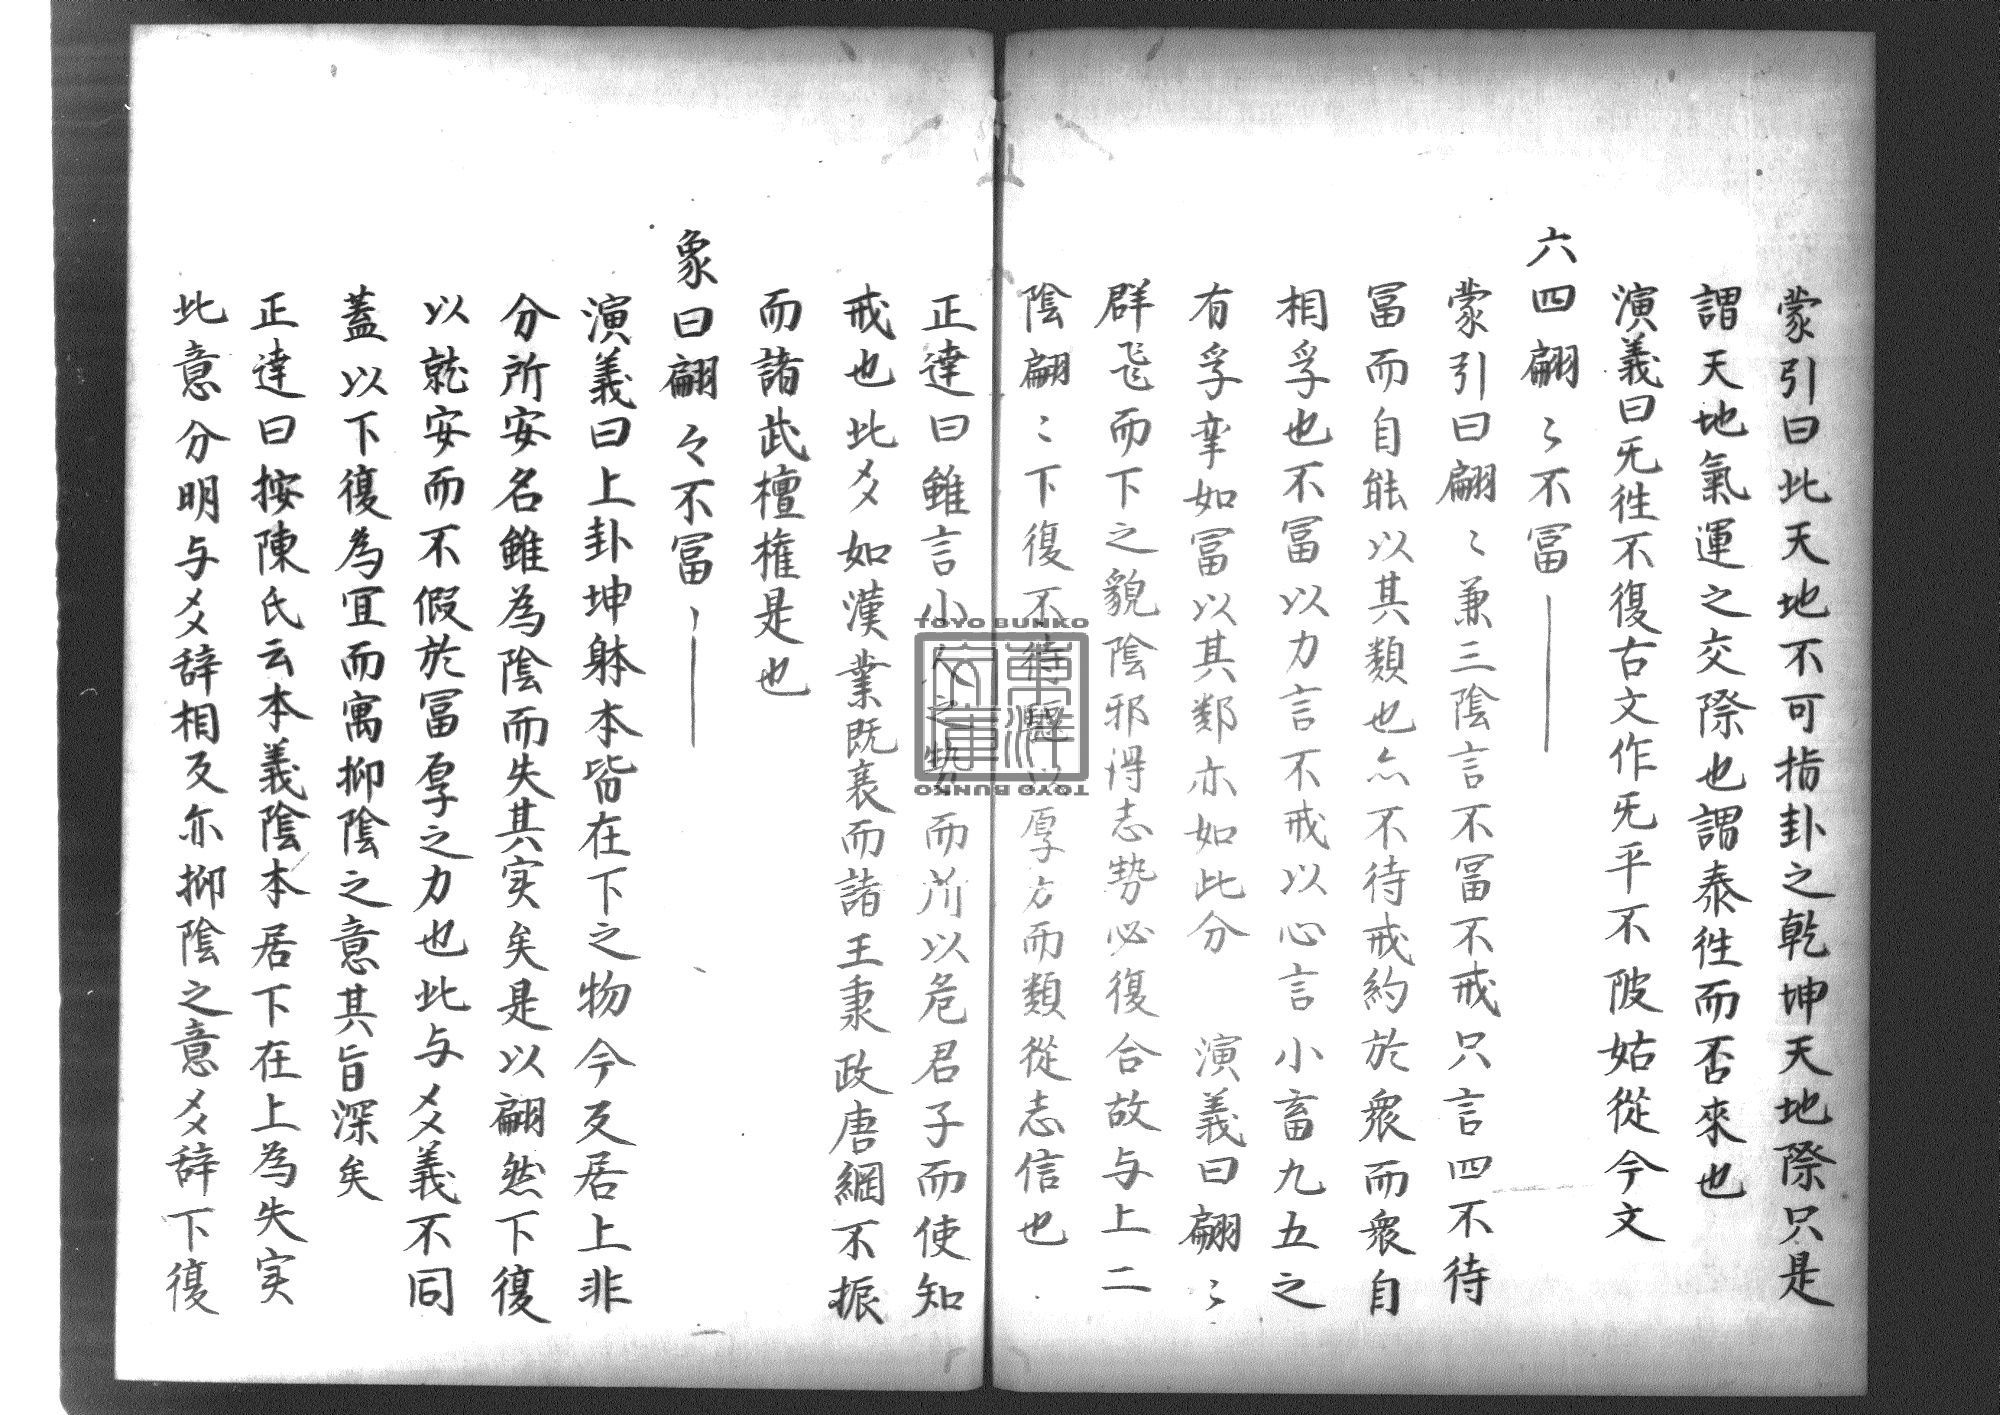 蒙引曰此天地不可指卦之乾坤天地際只是
謂天地氣運之交際也謂泰徃而否來也
演義曰旡徃不復古文作旡平不陂姑從今文
六四翩〻不冨――
蒙引曰翩〻兼三陰言不冨不戒只言四不待
冨而自能以其類也亦不待戒約於衆而衆自
相孚也不冨以力言不戒以心言小畜九五之
有孚攣如冨以其鄰亦如此分　演義曰翩〻
群飞而下之貌陰邪得志勢必復合故与上二
陰翩〻下復不待以厚力而類從志信也
正達曰雖言小人之勢而所以危君子而使知
戒也此爻如漢業既衰而諸王秉政唐綱不振
而諸武檀権是也
象曰翩々不冨――
演義曰上卦坤躰本皆在下之物今反居上非
分所安名雖為陰而失其実矣是以翩然下復
以就安而不假於冨厚之力也此与爻義不同
蓋以下復為冝而寓抑陰之意其旨深矣
正達曰按陳氏云本義陰本居下在上為失実
此意分明与爻辞相反亦抑陰之意爻辞下復
TOYO BUNKO
東洋文庫
TOYO BUNKO